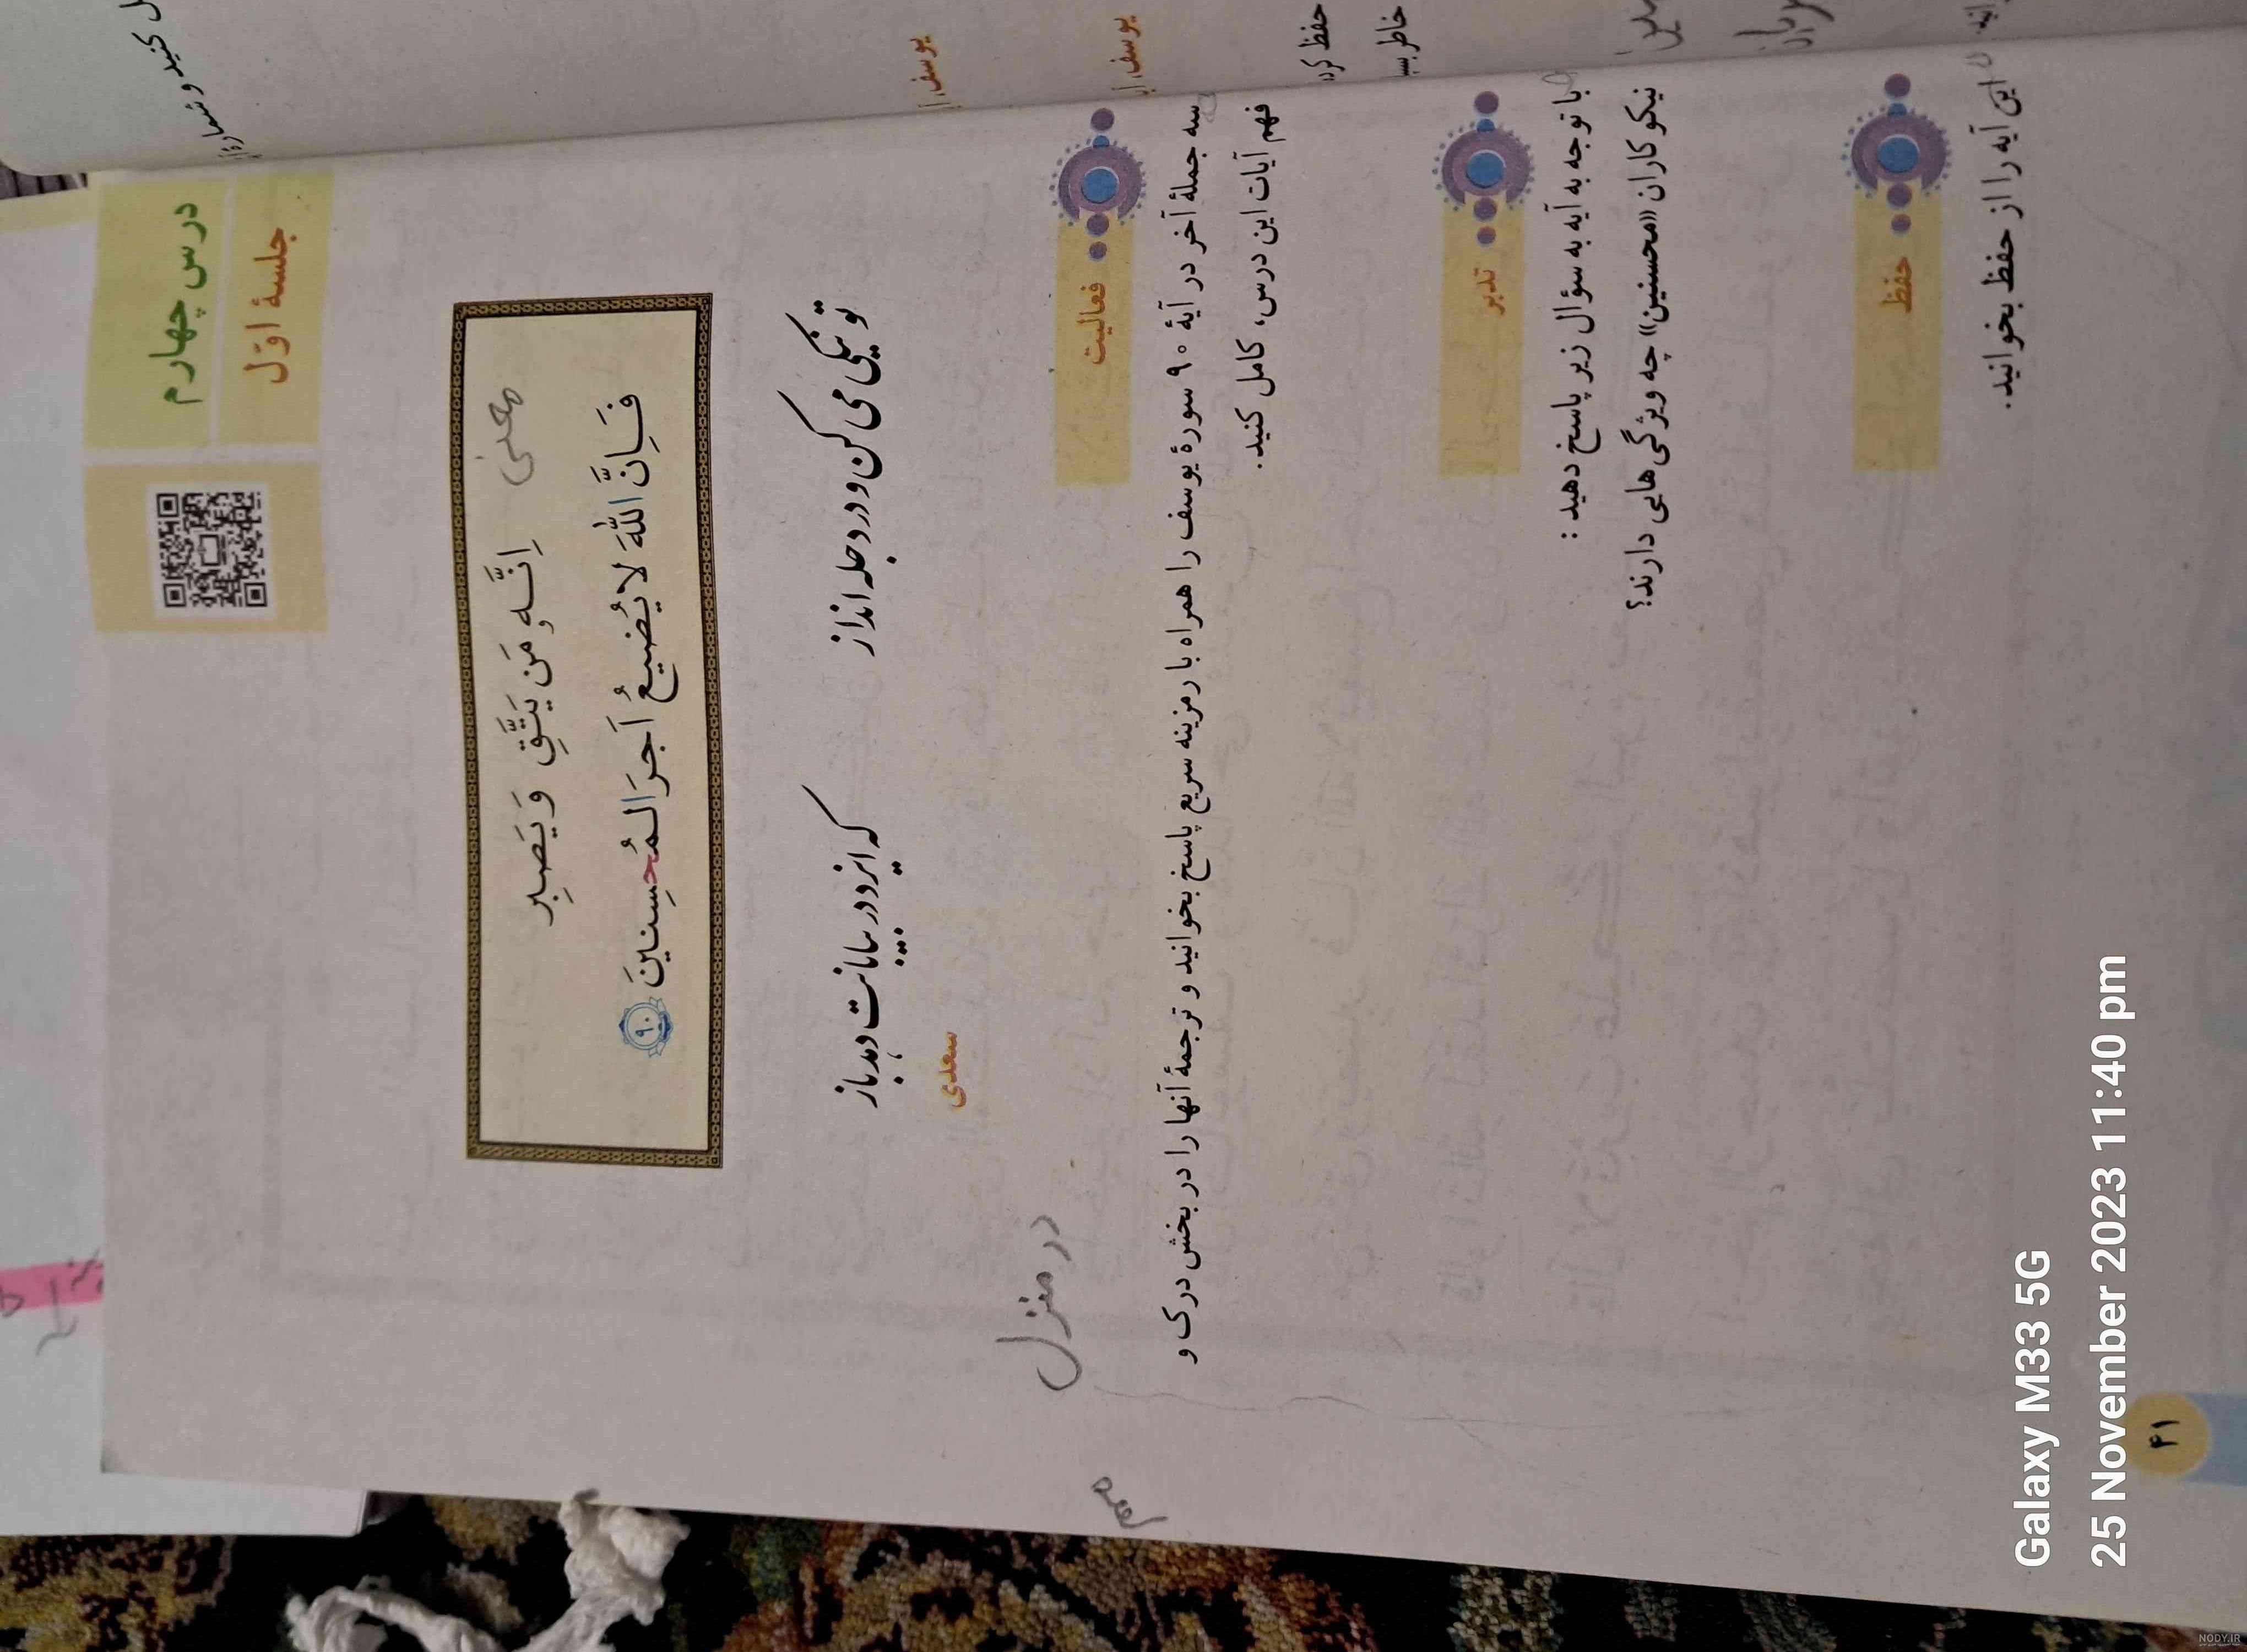 درس چهارم
جلسهٔ اوّل
معنی
اِنَّهو مَن يَتَّقِ وَ يَصبِر
فَاِنَّ اللّٰهَ لا يُضيعُ اَجرَ المُحسِنينَ ۹۰
تو نیکی می کن و در دجله انداز
که ایزد در بیابانت دهد باز
سعدی
در منزل
فعالیت
سه جملهٔ آخر در آیهٔ ۹۰ سورهٔ یوسف را همراه با رمزینه سریع پاسخ بخوانید و ترجمهٔ آنها را در بخش درک و
فهم آیات این درس، کامل کنید.
تدبر
با توجه به آیه به سؤال زیر پاسخ دهید :
نیکوکاران «محسنین» چه ویژگی‌هایی دارند؟
حفظ
این آیه را از حفظ بخوانید.
۴۱
یوسف،
یوسف،
حفظ کرد
خاطر
Galaxy M33 5G
25 November 2023 11:40 pm
NODY.IR